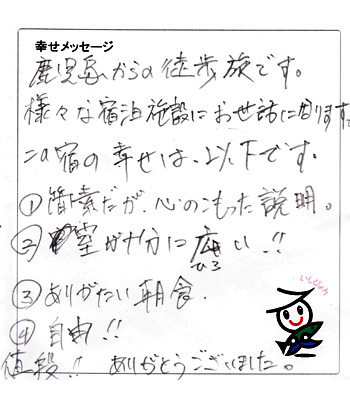 幸せメッセージ
鹿児島からの徒歩旅です。
様々な宿泊施設にお世話に回ります。
この宿の幸せは、以下です。
①簡素だが、心のこもった説明。
②室が十分に広い!!
ひろ
③ありがたい朝食.
④自由!!
値段!! ありがとうございました。